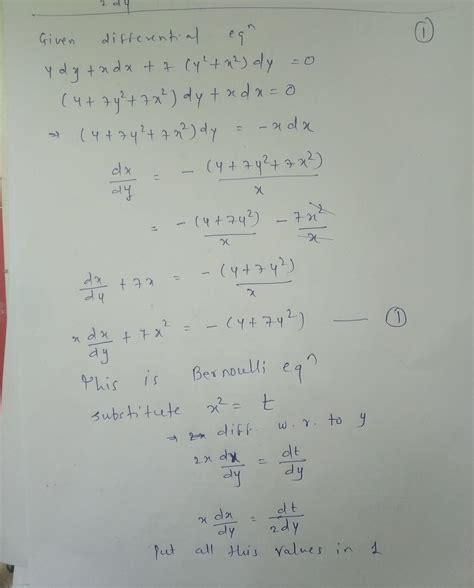 2 dy
Given differential eqⁿ ①
ydy + xdx + 7 (y² + x²) dy = 0
(y + 7y² + 7x²) dy + xdx = 0
⇒ (y + 7y² + 7x²) dy = - xdx
dx/dy = - (y + 7y² + 7x²)/x
= - (y + 7y²)/x - 7x²/x
dx/dy + 7x = - (y + 7y²)/x
x dx/dy + 7x² = - (y + 7y²) — ①
This is Bernoulli eqⁿ
substitute x² = t
⇒ diff. w. r. to y
2x dx/dy = dt/dy
x dx/dy = dt/2dy
Put all this values in 1